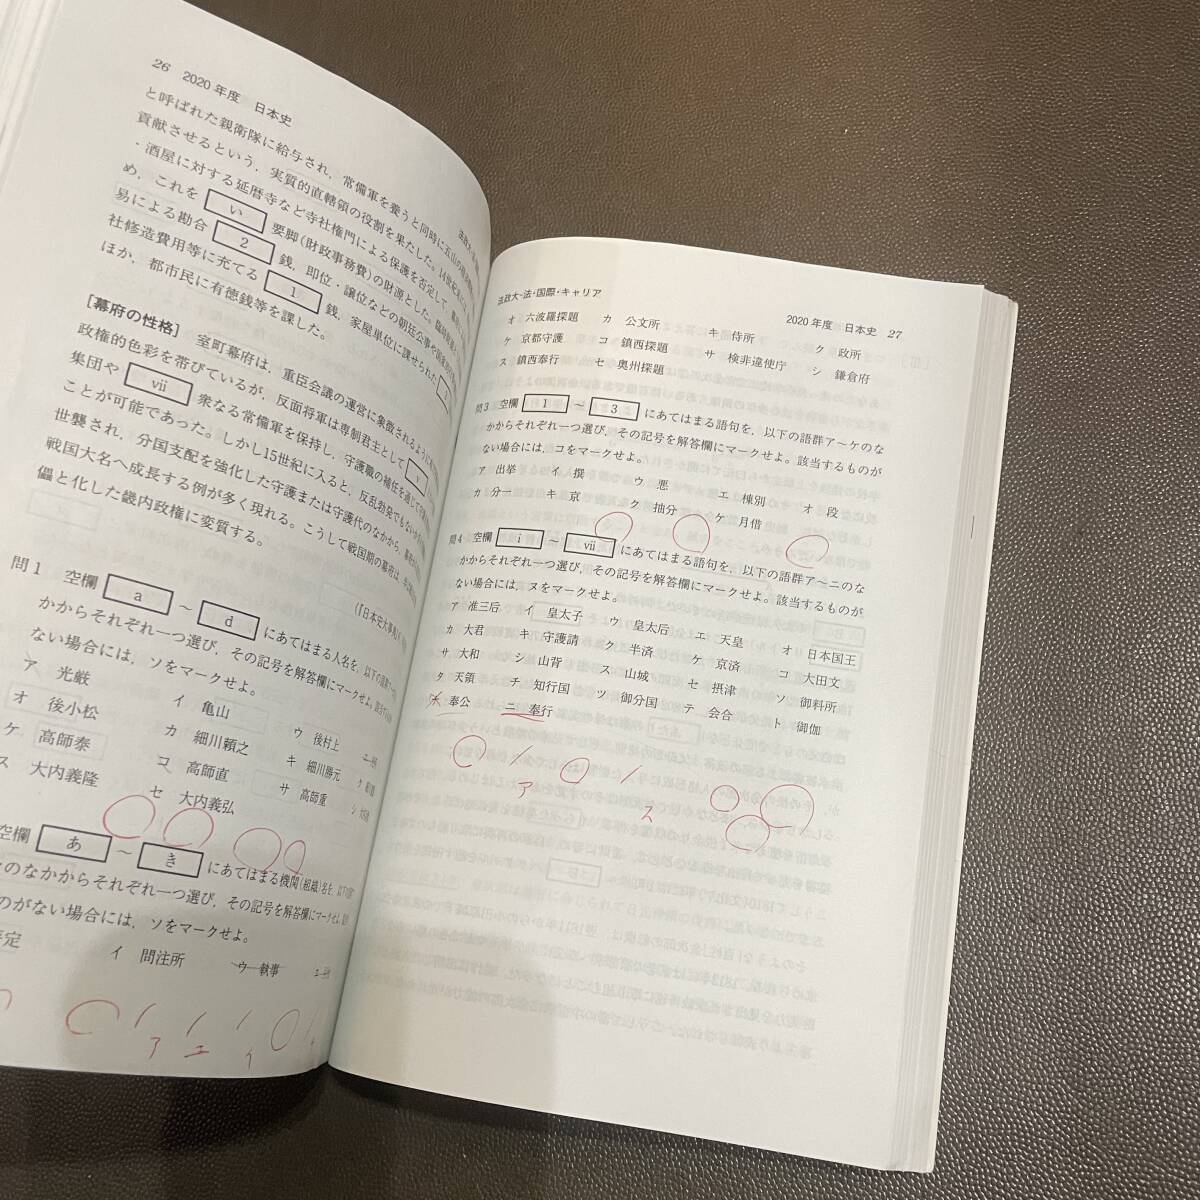 26 2020年度 日本史
と呼ばれた親衛隊に給与され，常備軍を養うと同時に五山の
貢献させるという，実質的直轄領の役割を果たした。14世紀末に
・酒屋に対する延暦寺など寺社権門による保護を否定して，
め，これを い 要脚(財政事務費)の財源とした。
易による勘合 2 銭，即位・譲位などの朝廷公事や
社修造費用等に充てる 1 銭，家屋単位に課せられた
ほか，都市民に有徳銭等を課した。
[幕府の性格] 室町幕府は，重臣会議の運営に象徴されるように
政権的色彩を帯びているが，反面将軍は専制君主として
集団や vii 衆なる常備軍を保持し，守護職の補任を通じて
ことが可能であった。しかし15世紀に入ると，反乱勃発でもない
世襲され，分国支配を強化した守護または守護代のなかから，
戦国大名へ成長する例が多く現れる。こうして戦国期の幕府は，
儡と化した畿内政権に変質する。
(『日本史大事典』
問1 空欄 a ～ d にあてはまる人名を，以下の
かからそれぞれ一つ選び，その記号を解答欄にマークせよ。
ない場合には，ソをマークせよ。
ア 光厳 イ 亀山 ウ 後村上
オ 後小松 カ 細川頼之 キ 細川勝元
ケ 高師泰 コ 高師直 サ 高師重
ス 大内義隆 セ 大内義弘
空欄 あ ～ き にあてはまる機関(組織)名を，以下の
のなかからそれぞれ一つ選び，その記号を解答欄にマークせよ。
のがない場合には，ソをマークせよ。
イ 問注所 ウ 執事
ア エ イ
法政大-法・国際・キャリア
2020年度 日本史 27
オ 六波羅探題 カ 公文所 キ 侍所 ク 政所
ケ 京都守護 コ 鎮西探題 サ 検非違使庁 シ 鎌倉府
ス 鎮西奉行 セ 奥州探題
問3 空欄 1 ～ 3 にあてはまる語句を，以下の語群ア～ケのな
かからそれぞれ一つ選び，その記号を解答欄にマークせよ。該当するものが
ない場合には，コをマークせよ。
ア 出挙 イ 撰 ウ 悪 エ 棟別 オ 段
カ 分一 キ 京 ク 抽分 ケ 月借
問4 空欄 i ～ vii にあてはまる語句を，以下の語群ア～ニのな
かからそれぞれ一つ選び，その記号を解答欄にマークせよ。該当するものが
ない場合には，ヌをマークせよ。
ア 准三后 イ 皇太子 ウ 皇太后 エ 天皇 オ 日本国王
カ 大君 キ 守護請 ク 半済 ケ 京済 コ 大田文
サ 大和 シ 山背 ス 山城 セ 摂津 ソ 御料所
タ 天領 チ 知行国 ツ 御分国 テ 会合 ト 御伽
ナ 奉公 ニ 奉行
ア ス